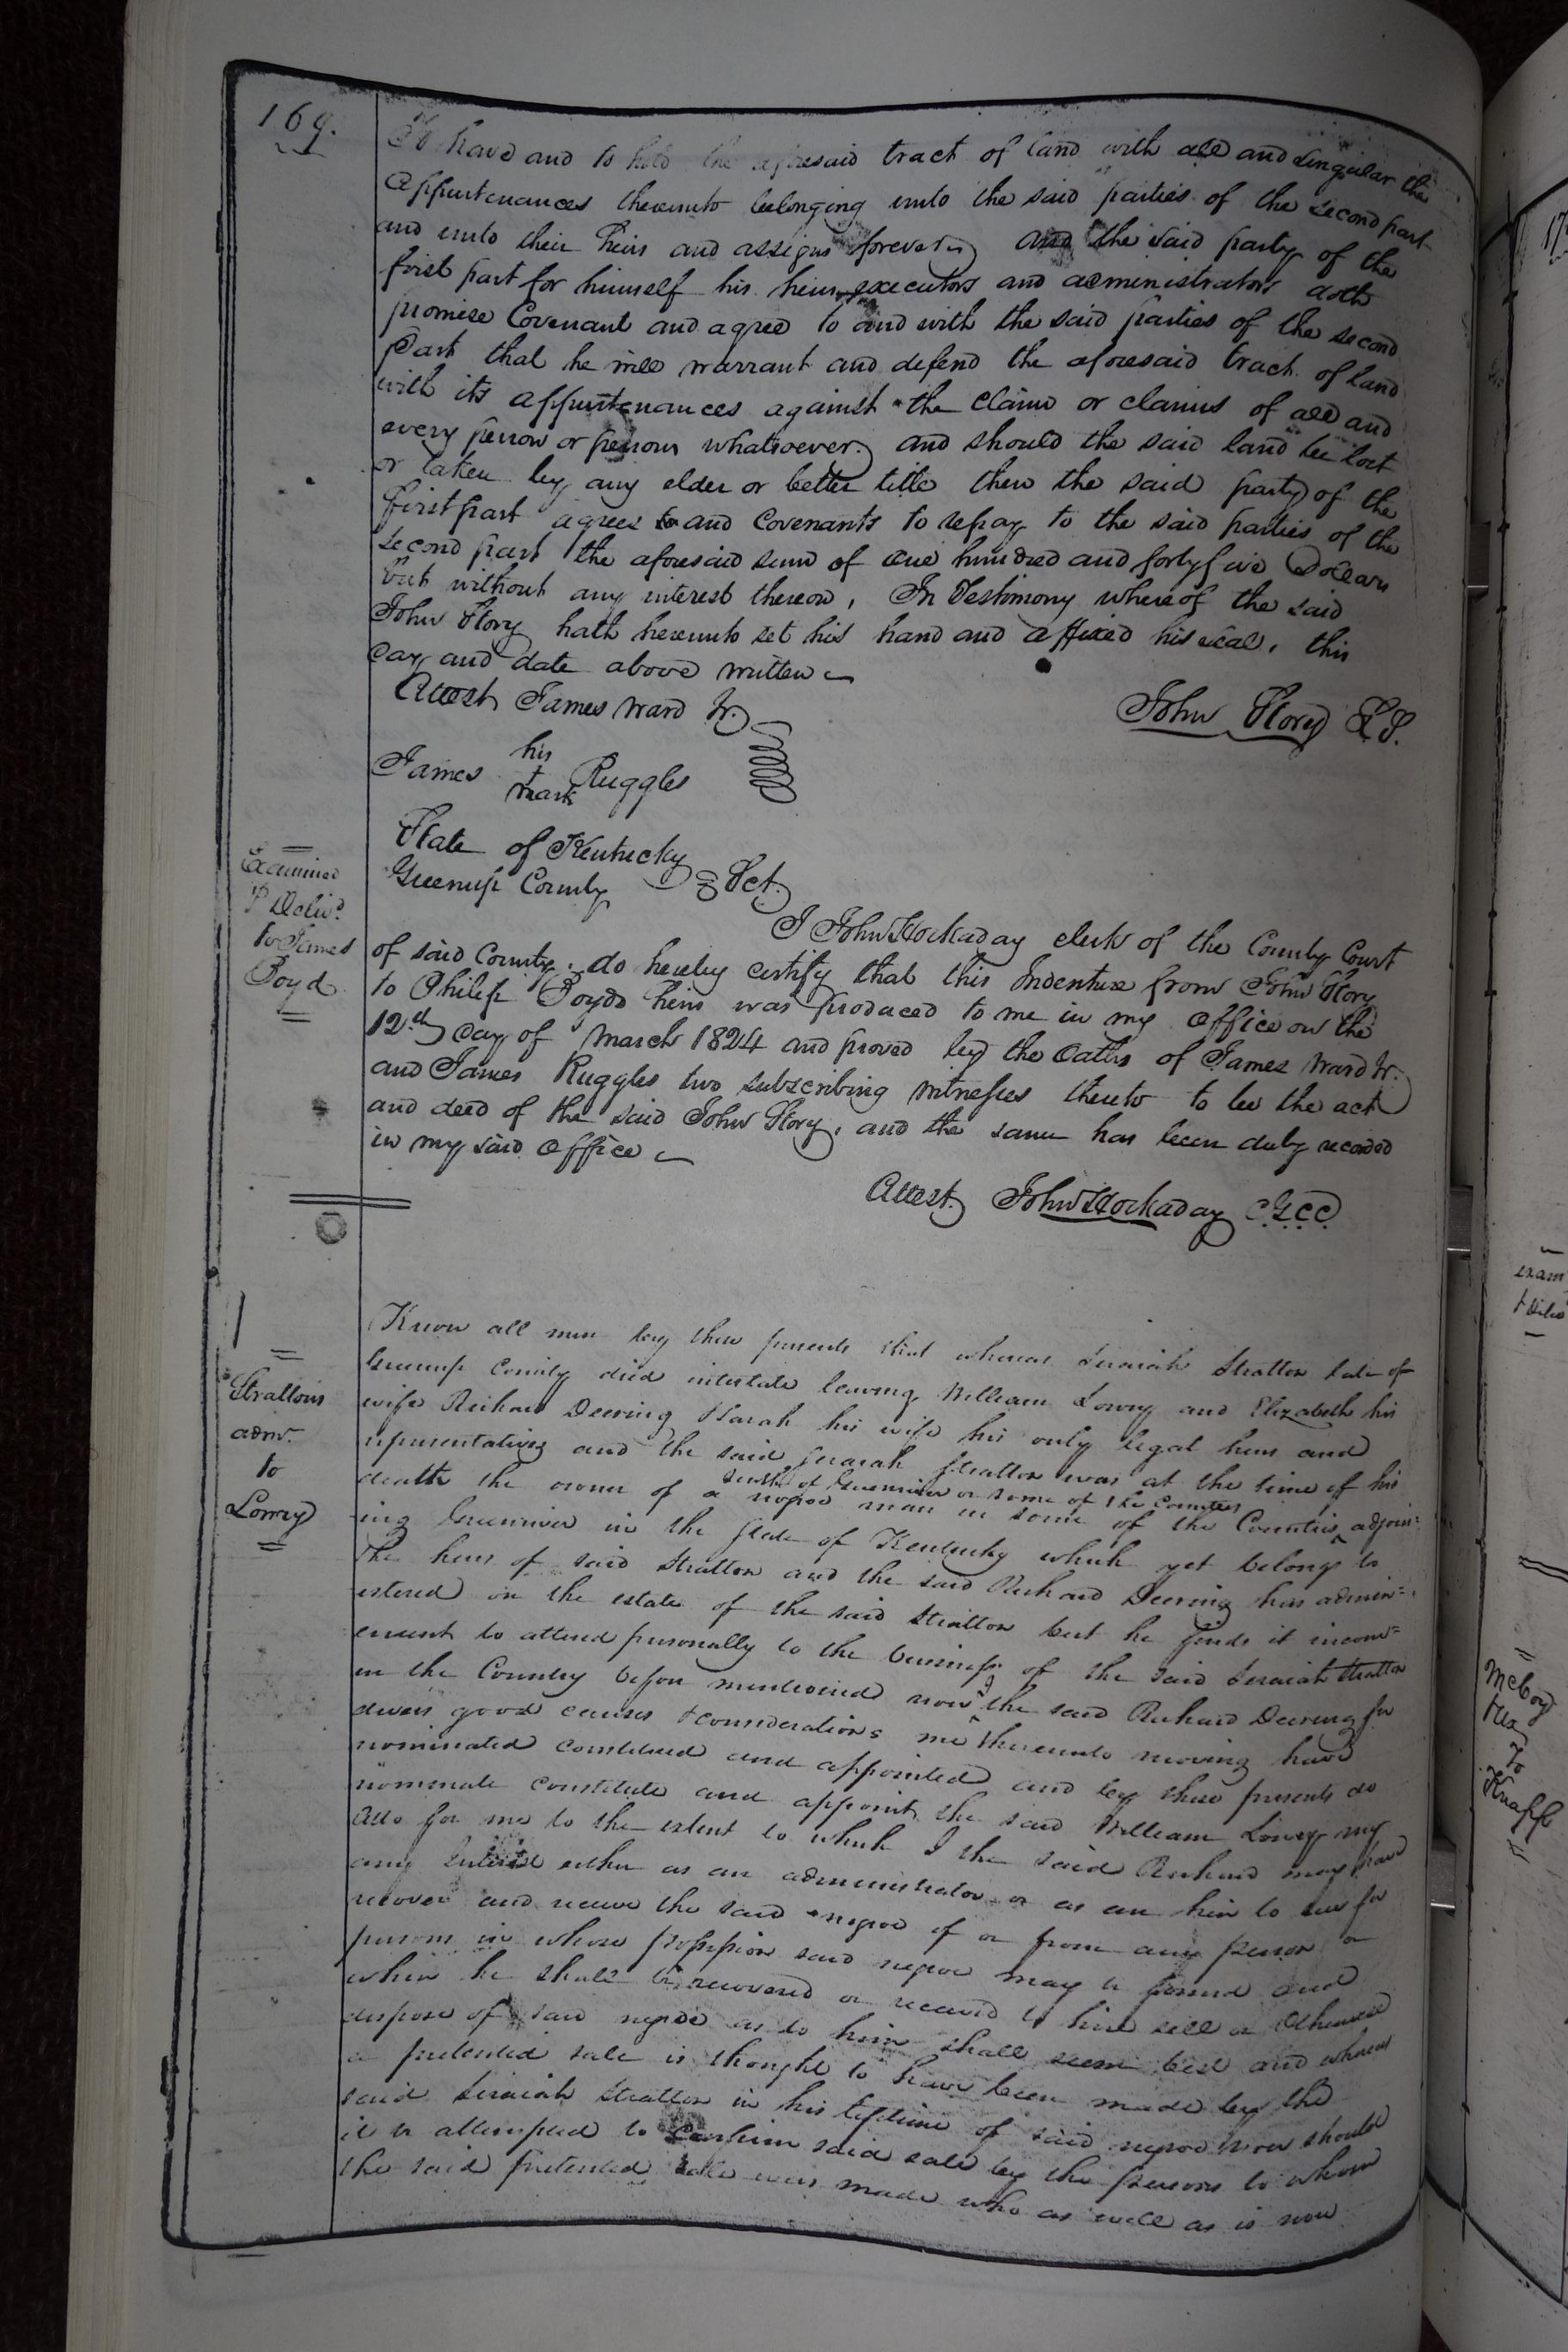 169.
To have and to hold the aforesaid tract of land with all and singular the
Appurtenances thereunto belonging unto the said parties of the second part
and unto their heirs and assigns forever, and the said party of the
first part for himself his heirs, executors and administrators doth
promise Covenant and agree to and with the said parties of the second
Part that he will warrant and defend the aforesaid tract of land
with its appurtenances against the claim or claims of all and
every person or persons whatsoever. and should the said land be lost
or taken by any elder or better title then the said party of the
first part agrees to and Covenants to repay to the said parties of the
second part the aforesaid sum of one hundred and forty five Dollars
but without any interest thereon, In Testimony whereof the said
John Story hath hereunto set his hand and affixed his seal, this
day and date above written
John Story L.S.
Attest James Ward Jr.
his
James + Ruggles
mark
State of Kentucky
Greenup County Sct.
Examined
& Delivd.
to James
Boyd
I John Hockaday clerk of the County Court
of said County, do hereby certify that this Indenture from John Story
to Philip Boyds heirs was produced to me in my office on the
12th day of March 1824 and proved by the Oaths of James Ward Jr.
and James Ruggles two subscribing witnesses thereto to be the act
and deed of the said John Story, and the same has been duly recorded
in my said office
Attest. John Hockaday C.G.C.C.
Strattons
admr.
to
Lowry
Know all men by these presents that whereas Seraiah Stratton late of
Greenup County died intestate leaving William Lowry and Elizabeth his
wife Richard Deering & Sarah his wife his only legal heirs and
representatives and the said Seraiah Stratton was at the time of his
south of Greenriver or some of the Counties
death the owner of a negroe man in some of the Counties adjoin=
ing Greenriver in the State of Kentucky which yet belongs to
the heirs of said Stratton and the said Richard Deering has admin=
istered on the estate of the said Stratton but he finds it inconv=
enient to attend personally to the business of the said Seraiah Stratton
in the Country before mentioned now I the said Richard Deering for
divers good causes & considerations me thereunto moving have
nominated constituted and appointed and by these presents do
nominate constitute and appoint the said William Lowry my
Atto for me to the extent to which I the said Richard may have
any interest either as an administrator or as an heir to sue for
recover and receive the said negroe of or from any person or
persons in whose possession said negroe may be found and
when he shall be recovered or received to hire sell or otherwise
dispose of said negroe as to him shall seem best and whereas
a pretended sale is thought to have been made by the
said Seraiah Stratton in his lifetime of said negroe now should
it be attempted to confirm said sale by the persons to whom
the said pretended sale was made who as well as is now
17
exam
McCoy
to
Knapp